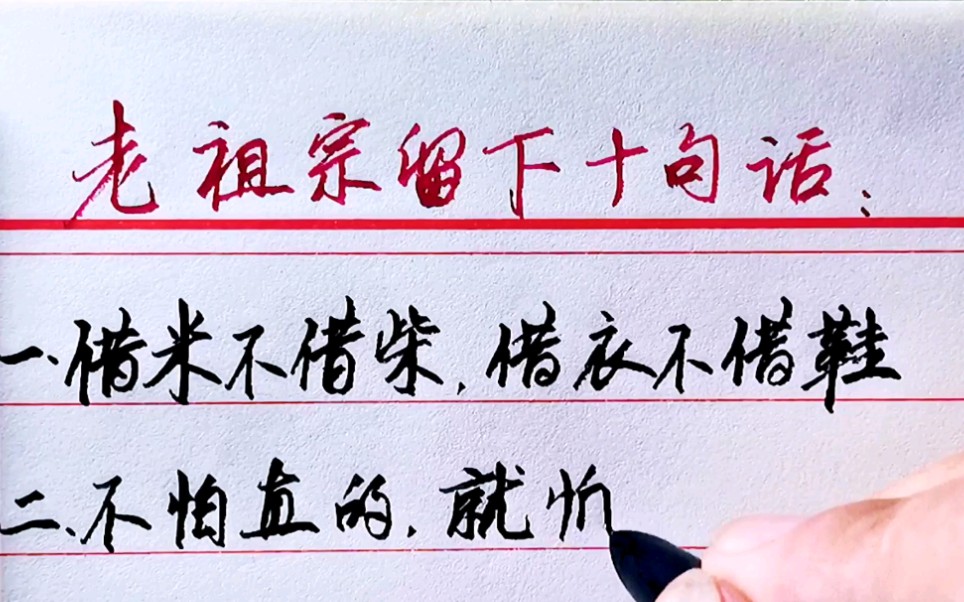 老祖宗留下十句话:
一、借米不借柴,借衣不借鞋
二、不怕直的,就